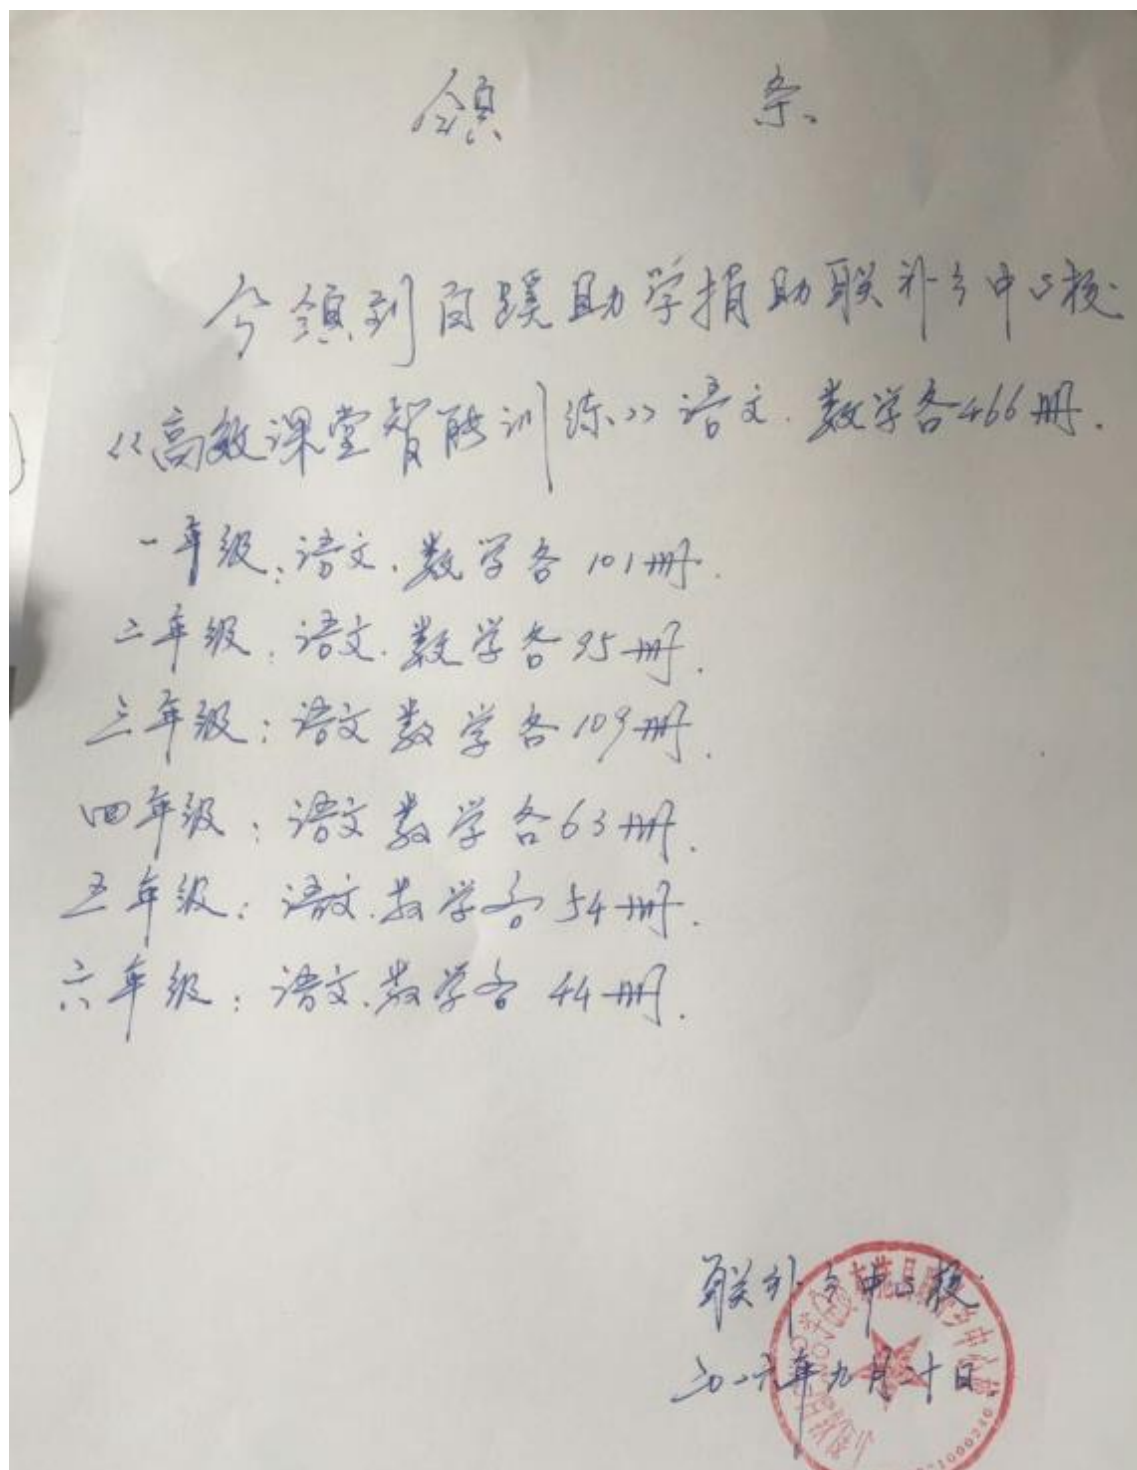 领 条
今领到百蹊助学捐助联补乡中心校
《高效课堂智能训练》语文.数学各466册.
一年级:语文.数学各101册.
二年级:语文.数学各95册.
三年级:语文数学各109册.
四年级:语文数学各63册.
五年级:语文.数学各54册.
六年级:语文.数学各44册.
联补乡中心校
二0一六年九月二十日